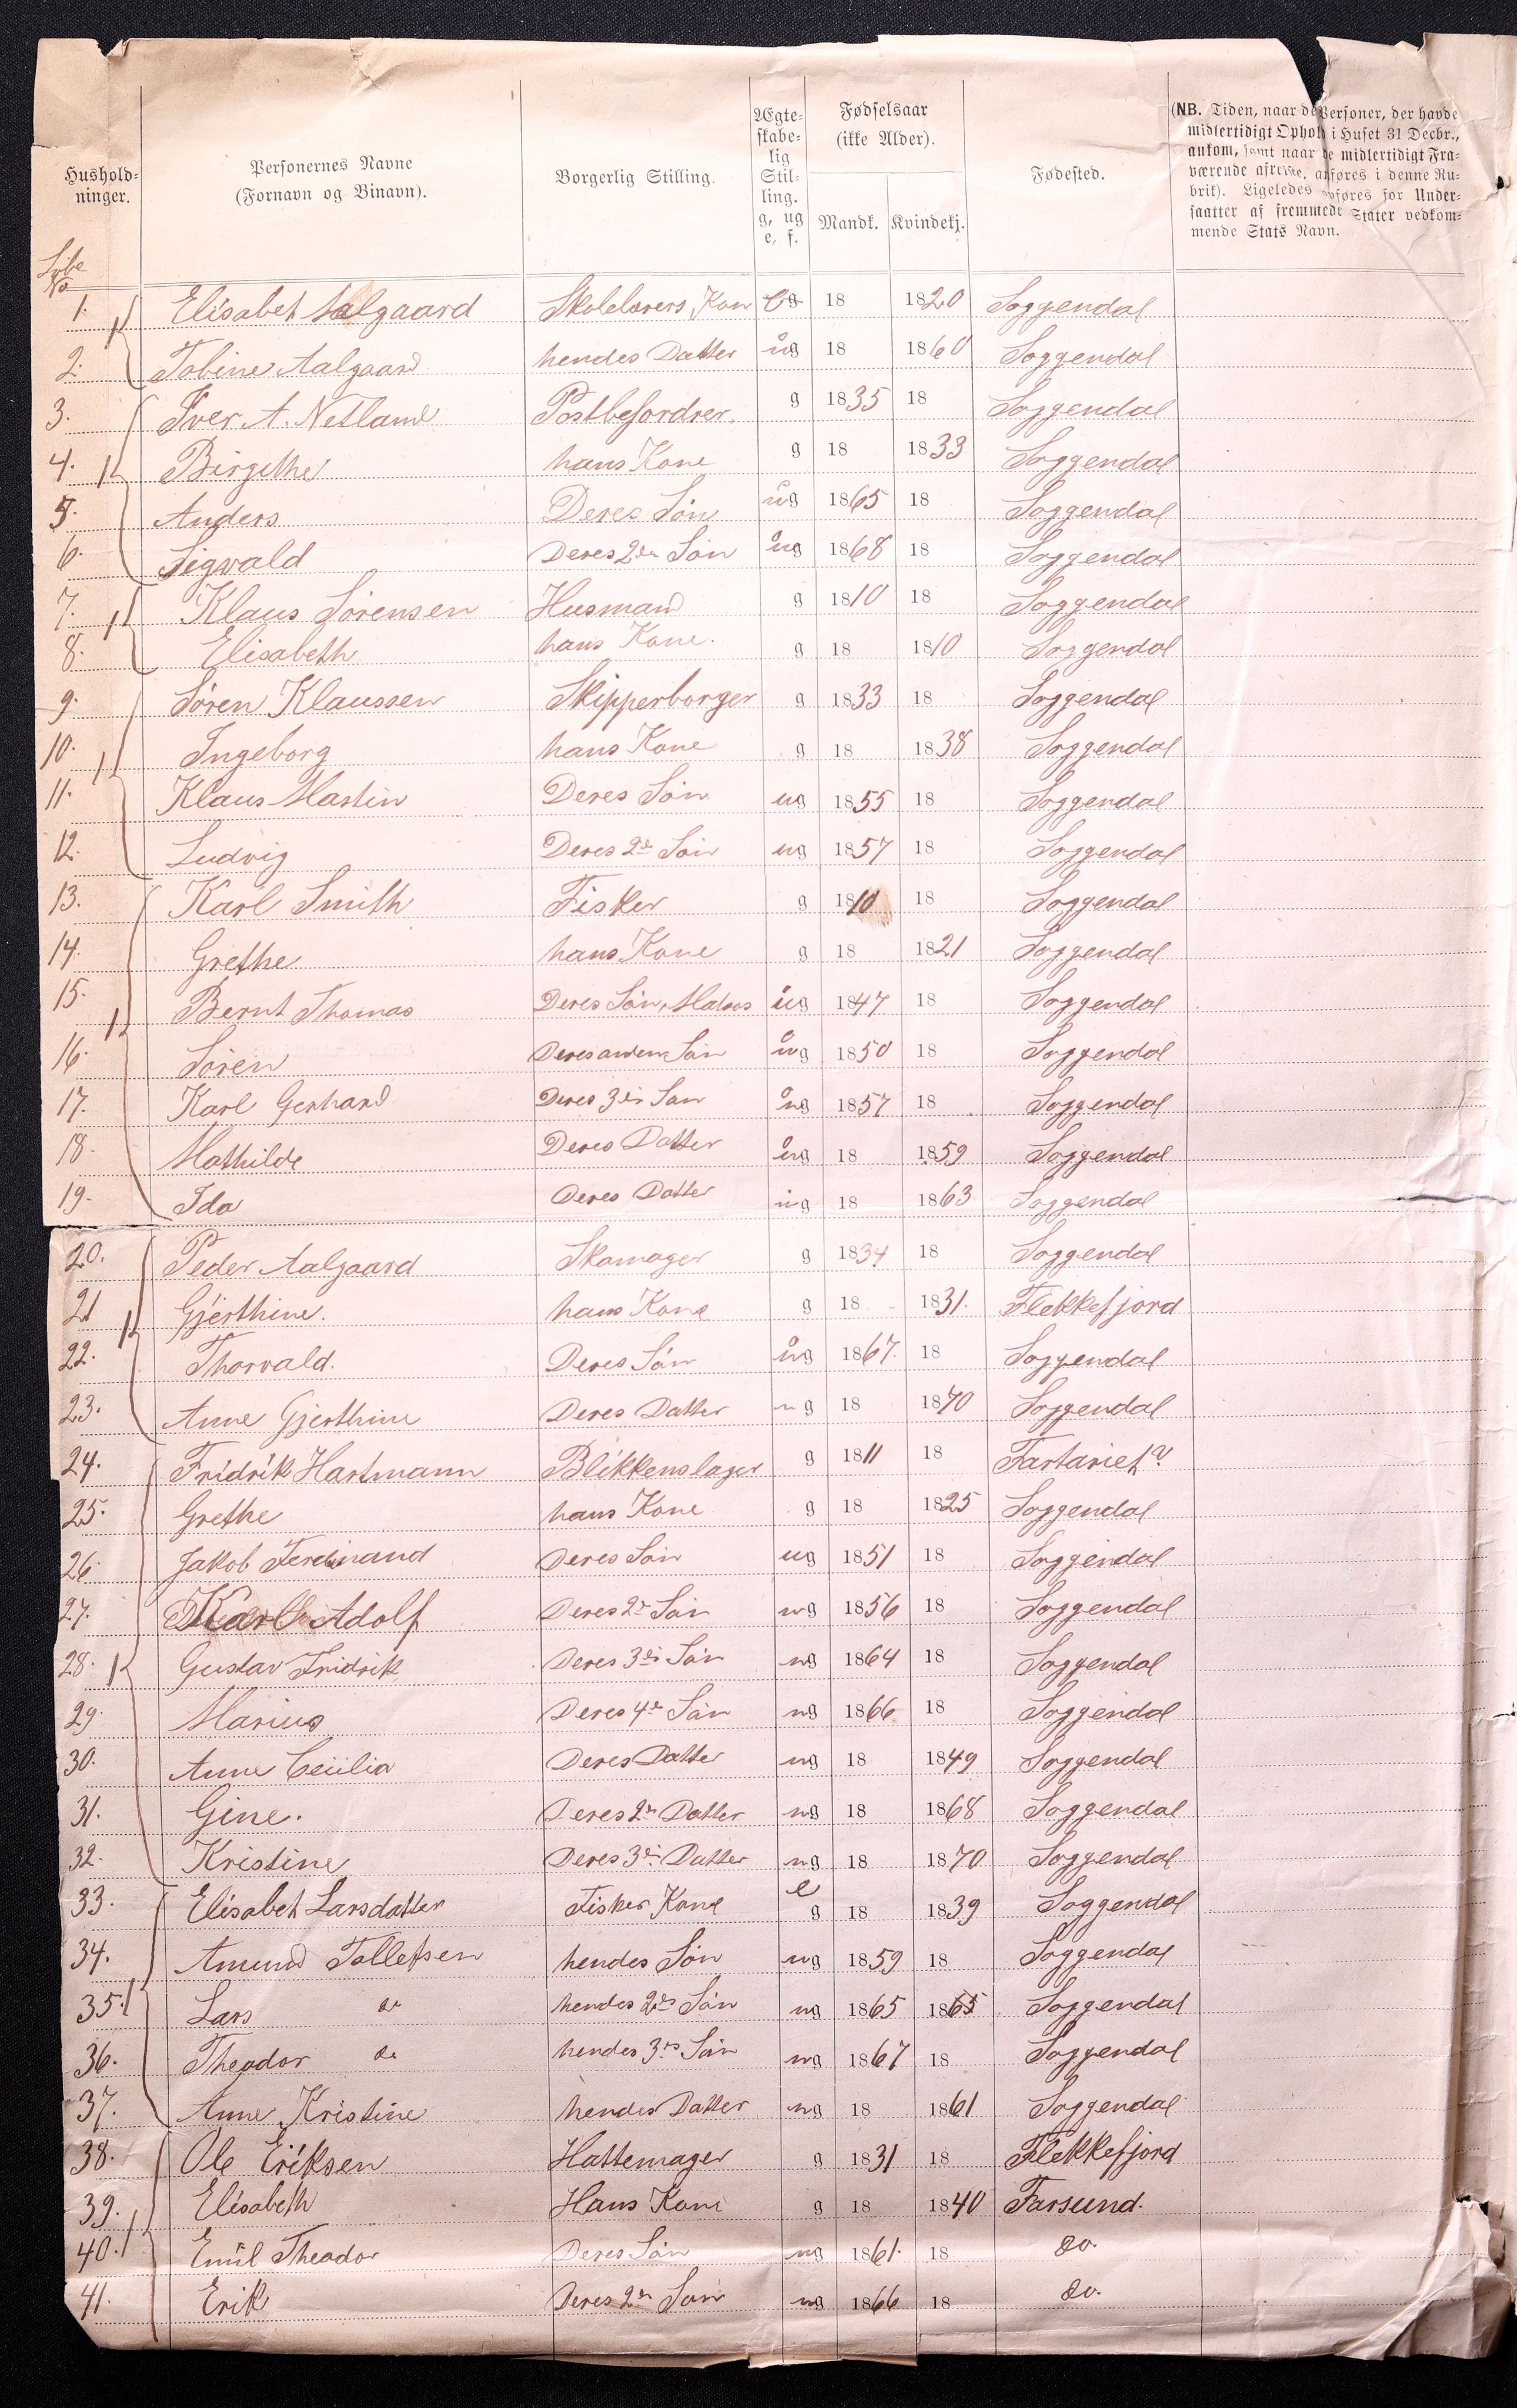 Hushold-
ninger.
Personernes Navne
(Fornavn og Binavn).
Borgerlig Stilling.
Ægte-
skabe-
lig
Stil-
ling.
g, ug
e, f.
Fødselsaar
(ikke Alder).
Mandk. Kvindekj.
Fødested.
(NB. Tiden, naar de Personer, der havde
midlertidigt Ophold i Huset 31 Decbr.,
ankom, samt naar de midlertidigt Fra-
værende afreiste, anføres i denne Ru-
brik). Ligeledes anføres for Under-
saatter af fremmede Stater vedkom-
mende Stats Navn.
Løbe
No
1. 1 Elisabet Aalgaard Skolelærers Kone g 18 1820 Soggendal
2. Tobine Aalgaard hendes Datter ug 18 1860 Soggendal
3. Iver A. Netland Postbefordrer. g 1835 18 Soggendal
4. 1 Birgithe hans Kone g 18 1833 Soggendal
5. Anders Deres Søn ug 1865 18 Soggendal
6. Sigvald Deres 2den Søn ug 1868 18 Soggendal
7. 1 Klaus Sørensen Husmand g 1810 18 Soggendal
8. Elisabeth hans Kone. g 18 1810 Soggendal
9. Søren Klaussen Skipperborger g 1833 18 Soggendal
10. 1 Ingeborg hans Kone g 18 1838 Soggendal
11. Klaus Martin Deres Søn ug 1855 18 Soggendal
12. Ludvig Deres 2de Søn ug 1857 18 Soggendal
13. Karl Smith Fisker g 1810 18 Soggendal
14. Grethe hans Kone g 18 1821 Soggendal
15. 1 Bernt Thomas Deres Søn, Matros ug 1847 18 Soggendal
16. Søren Deres anden Søn ug 1850 18 Soggendal
17. Karl Gerhard Deres 3die Søn ug 1857 18 Soggendal
18. Mathilde Deres Datter ug 18 1859 Soggendal
19. Ida Deres Datter ug 18 1863 Soggendal
20. Peder Aalgaard Skomager g 1834 18 Soggendal
21 1 Gjerthine. hans Kone g 18 1831. Flekkefjord
22. Thorvald. Deres Søn ug 1867. 18 Soggendal
23. Anne Gjerthine Deres Datter ug 18 1870 Soggendal
24. Fridrik Hartmann Blikkenslager g 1811 18 Tartariet?
25. Grethe hans Kone g 18 1825 Soggendal
26. Jakob Ferdinand Deres Søn ug 1851 18 Soggendal
27. Karl Adolf Deres 2de Søn ug 1856 18 Soggendal
28. 1 Gustav Fridrik Deres 3die Søn ug 1864 18 Soggendal
29. Marius Deres 4de Søn ug 1866 18 Soggendal
30. Anne Cecilia Deres Datter ug 18 1849 Soggendal
31. Gine. Deres 2den Datter ug 18 1868 Soggendal
32. Kristine Deres 3die Datter ug 18 1870 Soggendal
33. Elisabet Larsdatter Fisker Kone e g 18 1839 Soggendal
34. Amund Tollefsen hendes Søn ug 1859 18 Soggendal
35. 1 Lars do hendes 2den Søn ug 1865 1865 Soggendal
36. Theodor do hendes 3die Søn ug 1867 18 Soggendal
37. Anne Kristine hendes Datter ug 18 1861 Soggendal
38. Ole Eriksen Hattemager g 1831 18 Flekkefjord
39. Elisabeth Hans Kone g 18 1840 Farsund.
40. 1 Emil Theodor Deres Søn ug 1861. 18 Do.
41. Erik Deres 2den Søn ug 1866 18 Do.